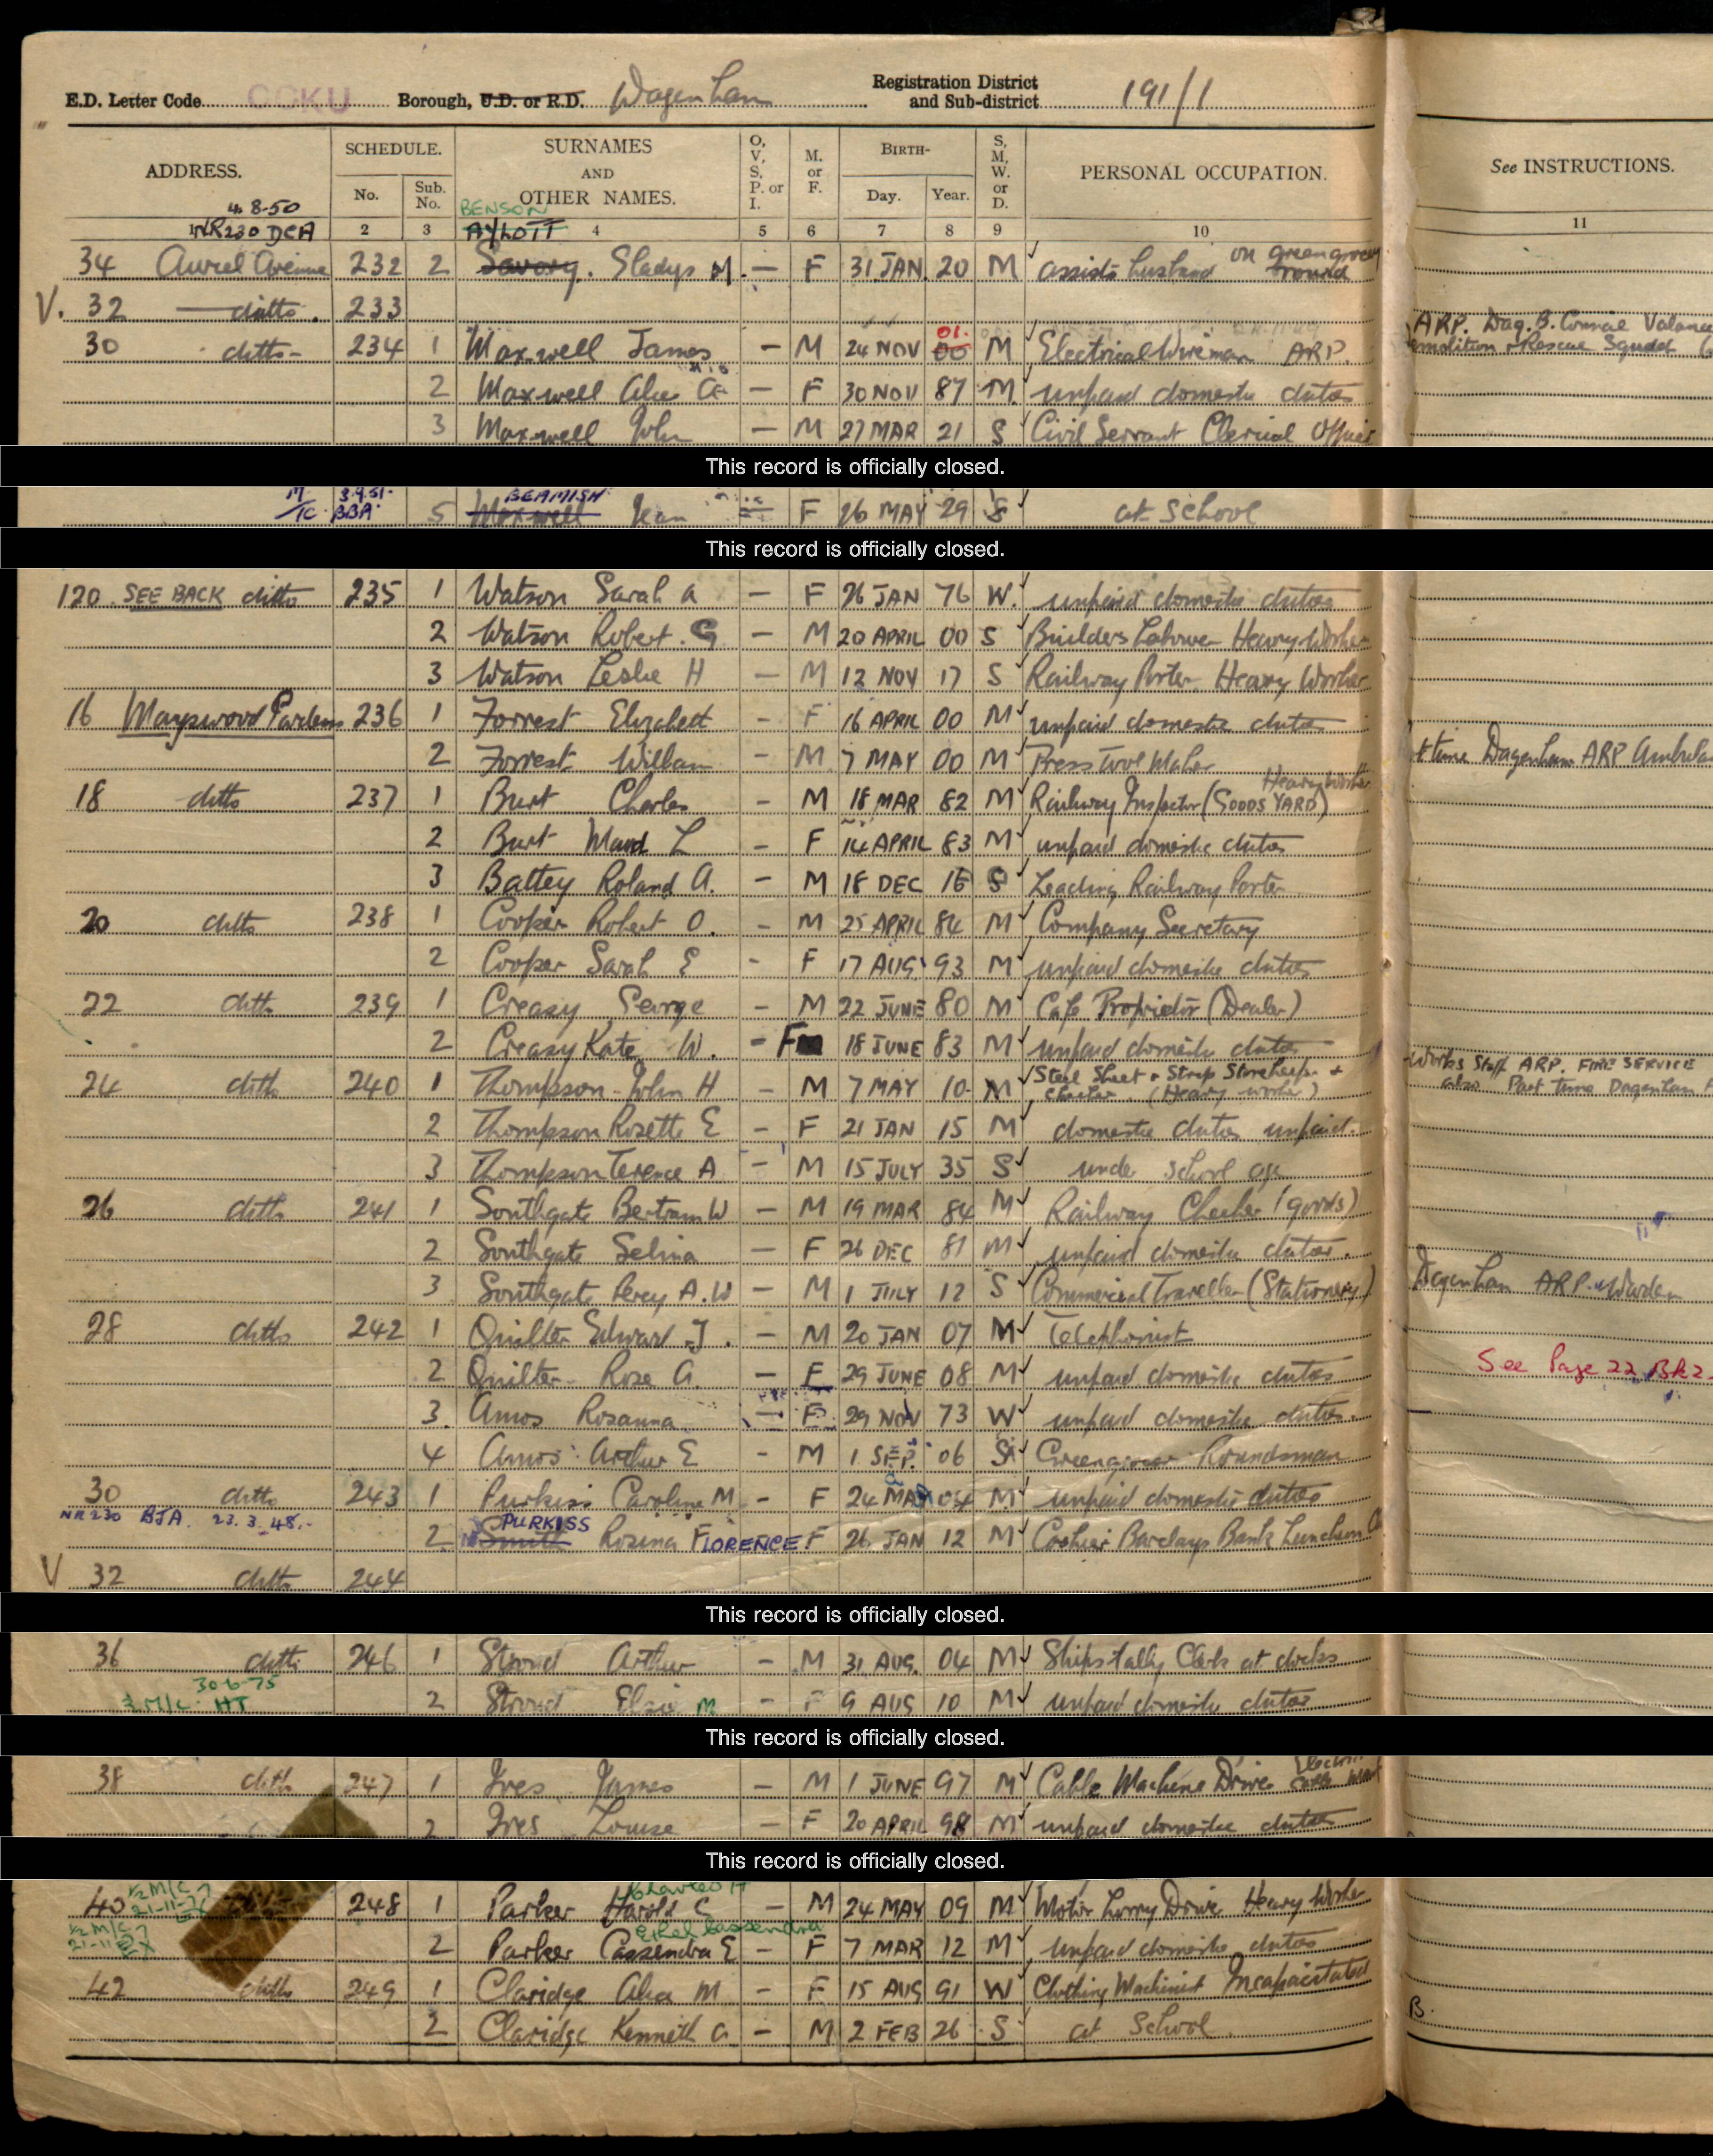 E.D. Letter Code CCKU Borough, U.D. or R.D. Dagenham Registration District and Sub-district 191/1
ADDRESS. SCHEDULE. No. Sub. No. SURNAMES AND OTHER NAMES. O, V, S, P. or I. M. or F. BIRTH- Day. Year. S, M, W. or D. PERSONAL OCCUPATION. See INSTRUCTIONS.
4.8.50 BENSON
NR230 DCA 2 3 AYLOTT 4 5 6 7 8 9 10 11
34 Auriel Avenue 232 2 Savory. Gladys M. — F 31 JAN. 20 M assists husband on greengrocery round
V. 32 ditto. 233
30 ditto- 234 1 Maxwell James — M 24 NOV 00 01. M Electrical Wireman ARP. ARP. Dag. B. Council Valence
Rescue Squad
2 Maxwell Alice — F 30 NOV 87 M. unpaid domestic duties
3 Maxwell John — M 27 MAR 21 S Civil Servant Clerical Officer
This record is officially closed.
M/C 3.9.51. BBA 5 Maxwell BEAMISH Jean = F 26 MAY 29 S at School
This record is officially closed.
120 SEE BACK ditto 235 1 Watson Sarah A — F 26 JAN 76 W. unpaid domestic duties
2 Watson Robert. G — M 20 APRIL 00 S Builders Labourer Heavy Worker
3 Watson Leslie H — M 12 NOV 17 S Railway Porter Heavy Worker
16 Mayswood Gardens 236 1 Forrest Elizabeth - F 16 APRIL 00 M unpaid domestic duties
2 Forrest William — M 7 MAY 00 M Press Tool Maker time Dagenham ARP
18 ditto 237 1 Burt Charles - M 18 MAR 82 M Railway Inspector (GOODS YARD) Heavy Worker
2 Burt Maud L — F 14 APRIL 83 M unpaid domestic duties
3 Battey Roland A. - M 18 DEC 16 S Leading Railway Porter
20 ditto 238 1 Cooper Robert O. - M 25 APRIL 84 M Company Secretary
2 Cooper Sarah E - F 17 AUG 93 M unpaid domestic duties
22 ditto 239 1 Creasy George - M 22 JUNE 80 M Cafe Proprietor (Dealer)
2 Creasy Kate W. - F 18 JUNE 83 M unpaid domestic duties
24 ditto 240 1 Thompson John H — M 7 MAY 10 M Steel Sheet & Strip Storekeeper & Checker (Heavy worker) Works Staff ARP. FIRE SERVICE
also Part time Dagenham
2 Thompson Rosette E - F 21 JAN 15 M domestic duties unpaid.
3 Thompson Terence A - M 15 JULY 35 S under school age
26 ditto 241 1 Southgate Bertram W — M 19 MAR 84 M Railway Checker (goods)
2 Southgate Selina — F 26 DEC 81 M unpaid domestic duties.
3 Southgate Percy A. W — M 1 JULY 12 S Commercial Traveller (Stationery) Dagenham ARP. Warden
28 ditto 242 1 Quilter Edward J. — M 20 JAN 07 M Telephonist
2 Quilter Rose A. — F 29 JUNE 08 M unpaid domestic duties See Page 22
3. Amos Rosanna — F 29 NOV 73 W unpaid domestic duties.
4 Amos Arthur E - M 1 SEP. 06 S Greengrocer Roundsman
30 ditto 243 1 Purkiss Caroline M - F 24 MAY 04 M unpaid domestic duties
NR230 BJA 23.3.48.- 2 Smith PURKISS Rosina FLORENCE F 26 JAN 12 M Cashier Barclays Bank Luncheon
V 32 ditto 244
This record is officially closed.
36 ditto 246 1 Stroud Arthur — M 31 AUG. 04 M Ships tally Clerk at docks
30-6-75 M/C HT 2 Stroud Elsie M - F 9 AUG 10 M unpaid domestic duties
This record is officially closed.
38 ditto 247 1 Ives James — M 1 JUNE 97 M Cable Machine Driver
2 Ives Louise — F 20 APRIL 98 M unpaid domestic duties
This record is officially closed.
40 248 1 Parker Harold C — M 24 MAY 09 M Motor Lorry Driver Heavy Worker
2 Parker Cassendra E Ethel Cassendra — F 7 MAR 12 M unpaid domestic duties
42 ditto 249 1 Claridge Alice M — F 15 AUG 91 W Clothing Machinist Incapacitated
2 Claridge Kenneth G — M 2 FEB 26 S at School. B.